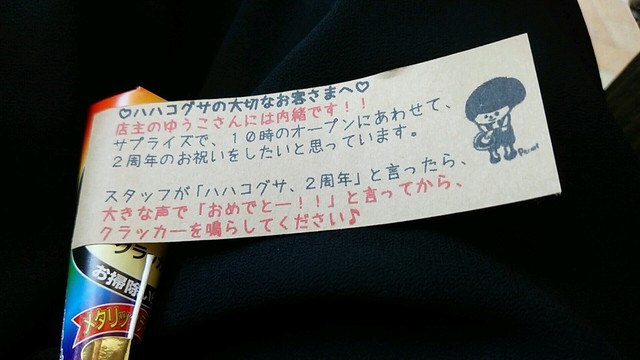 ♡ハハコグサの大切なお客さまへ♡
店主のゆうこさんには内緒です！！
サプライズで、１０時のオープンにあわせて、
２周年のお祝いをしたいと思っています。
スタッフが「ハハコグサ、２周年」と言ったら、
大きな声で「おめでとー！！」と言ってから、
クラッカーを鳴らしてください♪
クラッカー
お掃除
メタリック